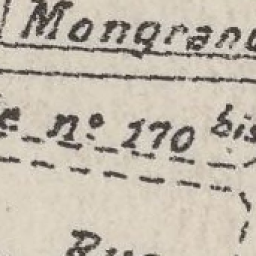 Mongrand
e nº 170 bis
Rue